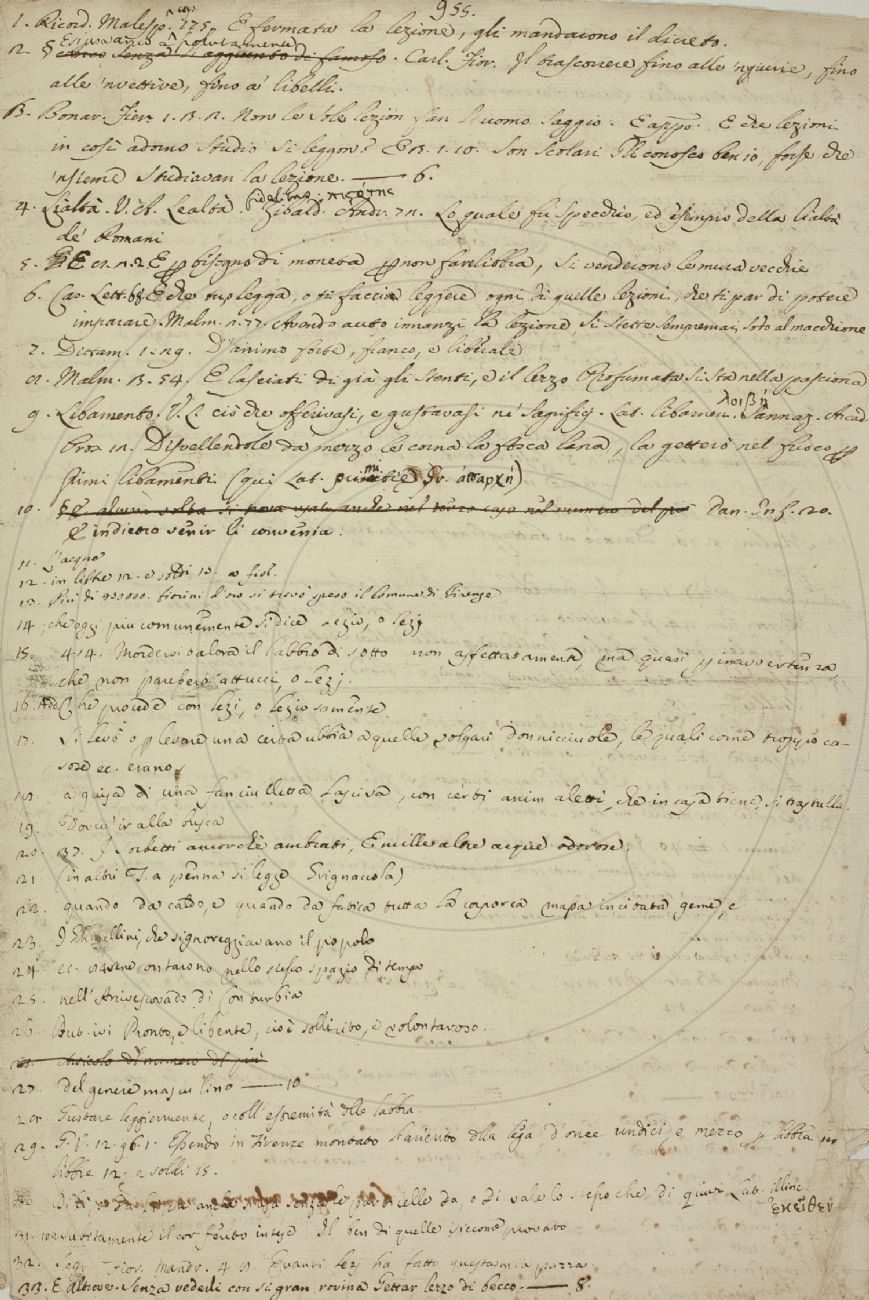 955.
1. Ricord. Malesp. cap. 175. E fermata la lezione, gli mandarono il dicreto.
2. senza aggiunto di famoso. Carl. Fior. Il trascorrere fino alle 'ngiurie, fino
alle 'nvettive, fino a' libelli.
3. Bonar. Fier. 1. 3. 2. Non le sole lezion fan l'uomo saggio. E app. E che lezioni
in così adorno studio si leggon? E 3. 1. 10. Son scolari Gli conosco ben io, forse che
'nsieme studiavan la lezione. — 6.
4. Lialtà. V. A. Lealtà. fidelitas. πιςότης Zibald. Andr. 72. Lo quale fu specchio, ed esempio della lialtà
de' Romani
5. E 8. 2. 2 E per bisogno di moneta per non fare libbia, si venderono le mura vecchie
6. Car. Lett. E che tu legga, o ti faccia leggere ogni dì quelle lezioni, che ti par di potere
imparare. Malm. 2. 77. Avendo avuto innanzi la lezione, Si stette sempremai, soto al macchione
7. Dittam. 1. 29. D'animo forte, franco, e liberale
8. Malm. 3. 54. E lasciati di già gli stenti, e il lezzo Profumata si sta nella pasciona
9. Libamento. V. L. ciò che offerivasi, e gustavasi ne' sagrifizj. Lat. libamen. λοιβή Sannaz. Arcad.
Pros. 10. Disvellendole da mezzo le corna la stocca lana, la gettetò nel fuoco per
primi libamenti (qui Lat. primitiae Gr. ἀπαρχή)
10. E alcuna volta si trova usato anche nel terzo caso nel numero del più Dan. Inf. 20.
E indietro venir li convenia.
11. L'acqno
12. in libre 12. e soldi 15. a fiol.
13. Più di fiorini d'oro si trovò speso il Comune di Firenze
14. che oggi più comunemente si dice lezio, o lezj
15. 414. Mordersi talora il labbro di sotto non affettatamente, ma quasi per inavvertenza,
che non paressero attucci, o lezj.
16. Che procede con lezj, o leziosamente.
17. Si levò o per levare una certa ubbia a quelle volgari donnicciuole, le quali come troppo ca-
sose ec. erano
18. a guisa di una fanciulletta lasciva, con certi animaletti, che in casa tiene, si trastulla.
19. Dovea ir alla busca
20. 37. I sorbetti ancorchè ambrati, E mille altre acque odorose
21. (in altri T. a penna si legge Grignacuola)
22. quando da caldo, e quando da fatica tutta la caporea massa incitata geme, e
23. I Ghibellini, che signoreggiavano il popolo
24. ec. contarono nello stesso spazio di tempo
25. nell'Arcivescovado di Conturbia
26. But. ivi Pronto, e libente, cioè sollicito, e volontaroso.
Articolo di numero del più
27. del genere masculino — 10
28. Gustare leggiermente, o coll'estremità delle labbra.
29. G. V. 12. 96. 1. Essendo in Firenze montato l'ariento della lega d'once undici, e mezzo per libbra in
libbre 12. e soldi 15.
30. senza le particelle da, o di vale lo stesso che di quivi Lat. illinc. ἐκεῖθεν
31. il cor ferito intese Il ben di quelle siccome provato
32. Segr. Fior. Mandr. 4. 8. E quanti lezj ha fatto questa mia pazza
33. E altrove. Senza vederli con sì gran rovina Gettar lezzo di becco. — 8.